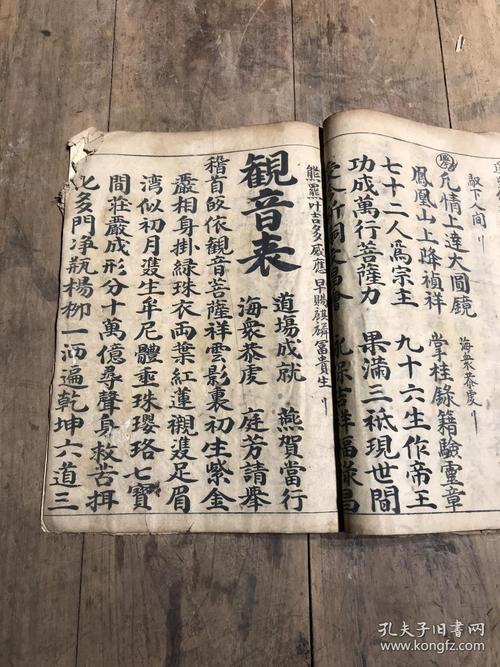 海衆恭虔
凢情上達大圓鏡 掌桂錄籍驗靈章
鳳凰山上降禎祥
七十二人爲宗主 九十六生作帝王
功成萬行菩薩力 果滿三祇現世間
保吉祥福祿昌
熊羆叶吉多感應早賜麒麟富貴生
觀音表
道塲成就 燕賀當行
海衆恭虔 庭芳請舉
稽首皈依觀音菩薩祥雲影裏初生紫金
嚴相身掛綠珠衣両葉紅蓮襯䨇足眉
湾似初月䨇生牟尼體垂珠瓔珞七寶
間莊嚴成形分十萬億尋聲身救苦
化多門净瓶楊柳一洒遍乾坤六道三
孔夫子旧书网
www.kongfz.com